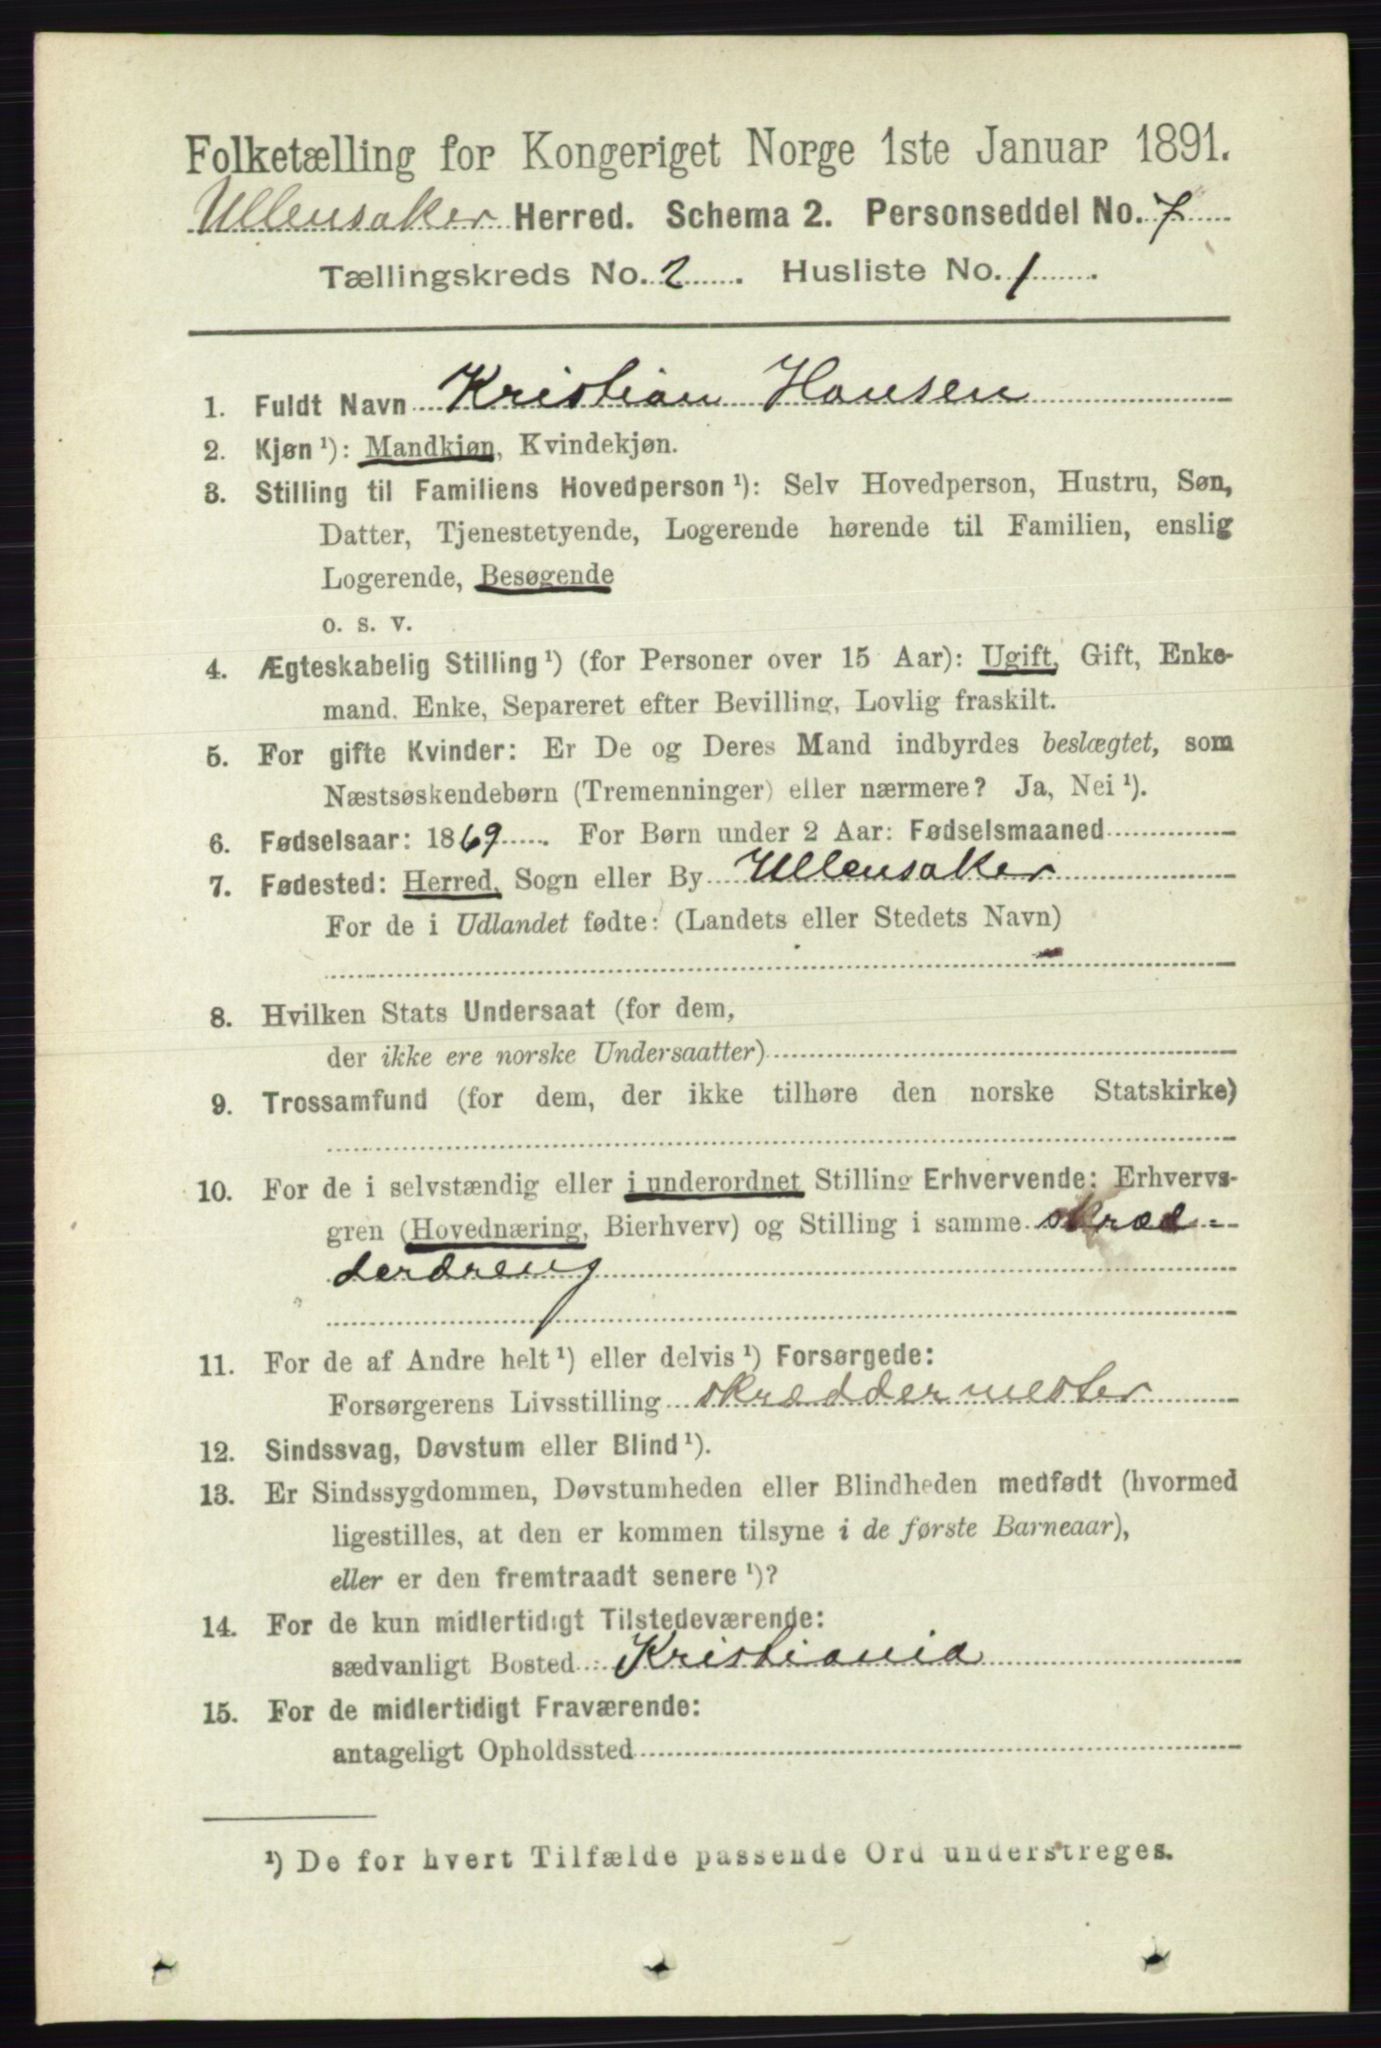 Folketælling for Kongeriget Norge 1ste Januar 1891.
Ullensaker Herred. Schema 2. Personseddel No. 7
Tællingskreds No. 2. Husliste No. 1.
1. Fuldt Navn Kristian Hansen
2. Kjøn ¹): Mandkjøn, Kvindekjøn.
3. Stilling til Familiens Hovedperson ¹): Selv Hovedperson, Hustru, Søn,
Datter, Tjenestetyende, Logerende hørende til Familien, enslig
Logerende, Besøgende
o. s. v.
4. Ægteskabelig Stilling ¹) (for Personer over 15 Aar): Ugift, Gift, Enke-
mand, Enke, Separeret efter Bevilling, Lovlig fraskilt.
5. For gifte Kvinder: Er De og Deres Mand indbyrdes beslægtet, som
Næstsøskendebørn (Tremenninger) eller nærmere? Ja, Nei ¹).
6. Fødselsaar: 1869. For Børn under 2 Aar: Fødselsmaaned
7. Fødested: Herred, Sogn eller By Ullensaker
For de i Udlandet fødte: (Landets eller Stedets Navn)
8. Hvilken Stats Undersaat (for dem,
der ikke ere norske Undersaatter)
9. Trossamfund (for dem, der ikke tilhøre den norske Statskirke)
10. For de i selvstændig eller i underordnet Stilling Erhvervende: Erhvervs-
gren (Hovednæring, Bierhverv) og Stilling i samme skræd-
derdreng
11. For de af Andre helt ¹) eller delvis ¹) Forsørgede:
Forsørgerens Livsstilling skræddermester
12. Sindssvag, Døvstum eller Blind ¹).
13. Er Sindssygdommen, Døvstumheden eller Blindheden medfødt (hvormed
ligestilles, at den er kommen tilsyne i de første Barneaar),
eller er den fremtraadt senere ¹)?
14. For de kun midlertidigt Tilstedeværende:
sædvanligt Bosted Kristiania
15. For de midlertidigt Fraværende:
antageligt Opholdssted
¹) De for hvert Tilfælde passende Ord understreges.